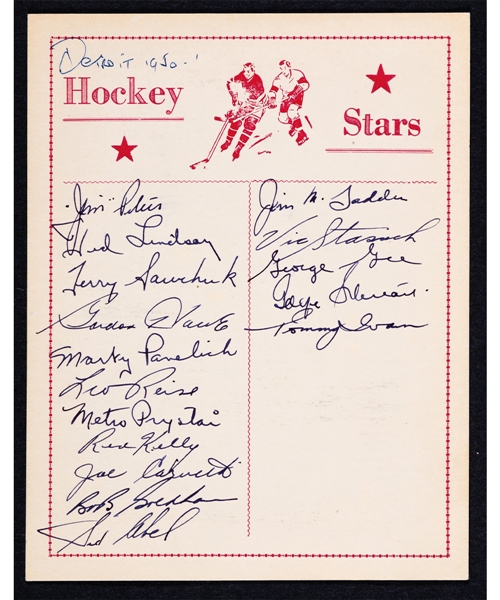 Detroit 1950-1
Hockey
Stars
"Jim" Peters
Ted Lindsay
Terry Sawchuk
Gordon Howe
Marty Pavelich
Leo Reise
Metro Prystai
Red Kelly
Joe Carveth
Bob Goldham
Sid Abel
Jim Mc Fadden
Vic Stasiuk
George Gee
Gaye Stewart
Tommy Ivan